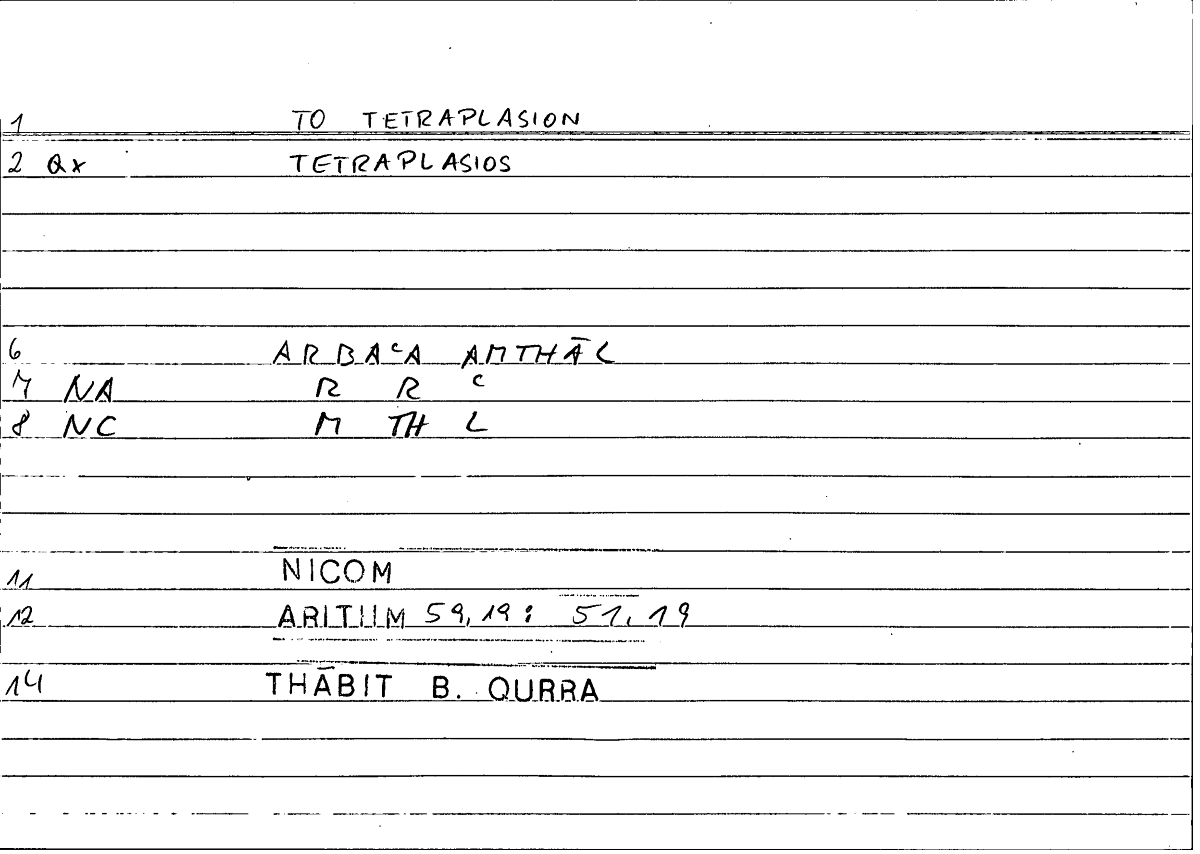 1 TO TETRAPLASION
2 Qx TETRAPLASIOS
6 ARBAᶜA AMTHĀL
7 NA R R ᶜ
8 NC M TH L
11 NICOM
12 ARITHM 59,19: 51,19
14 THĀBIT B. QURRA